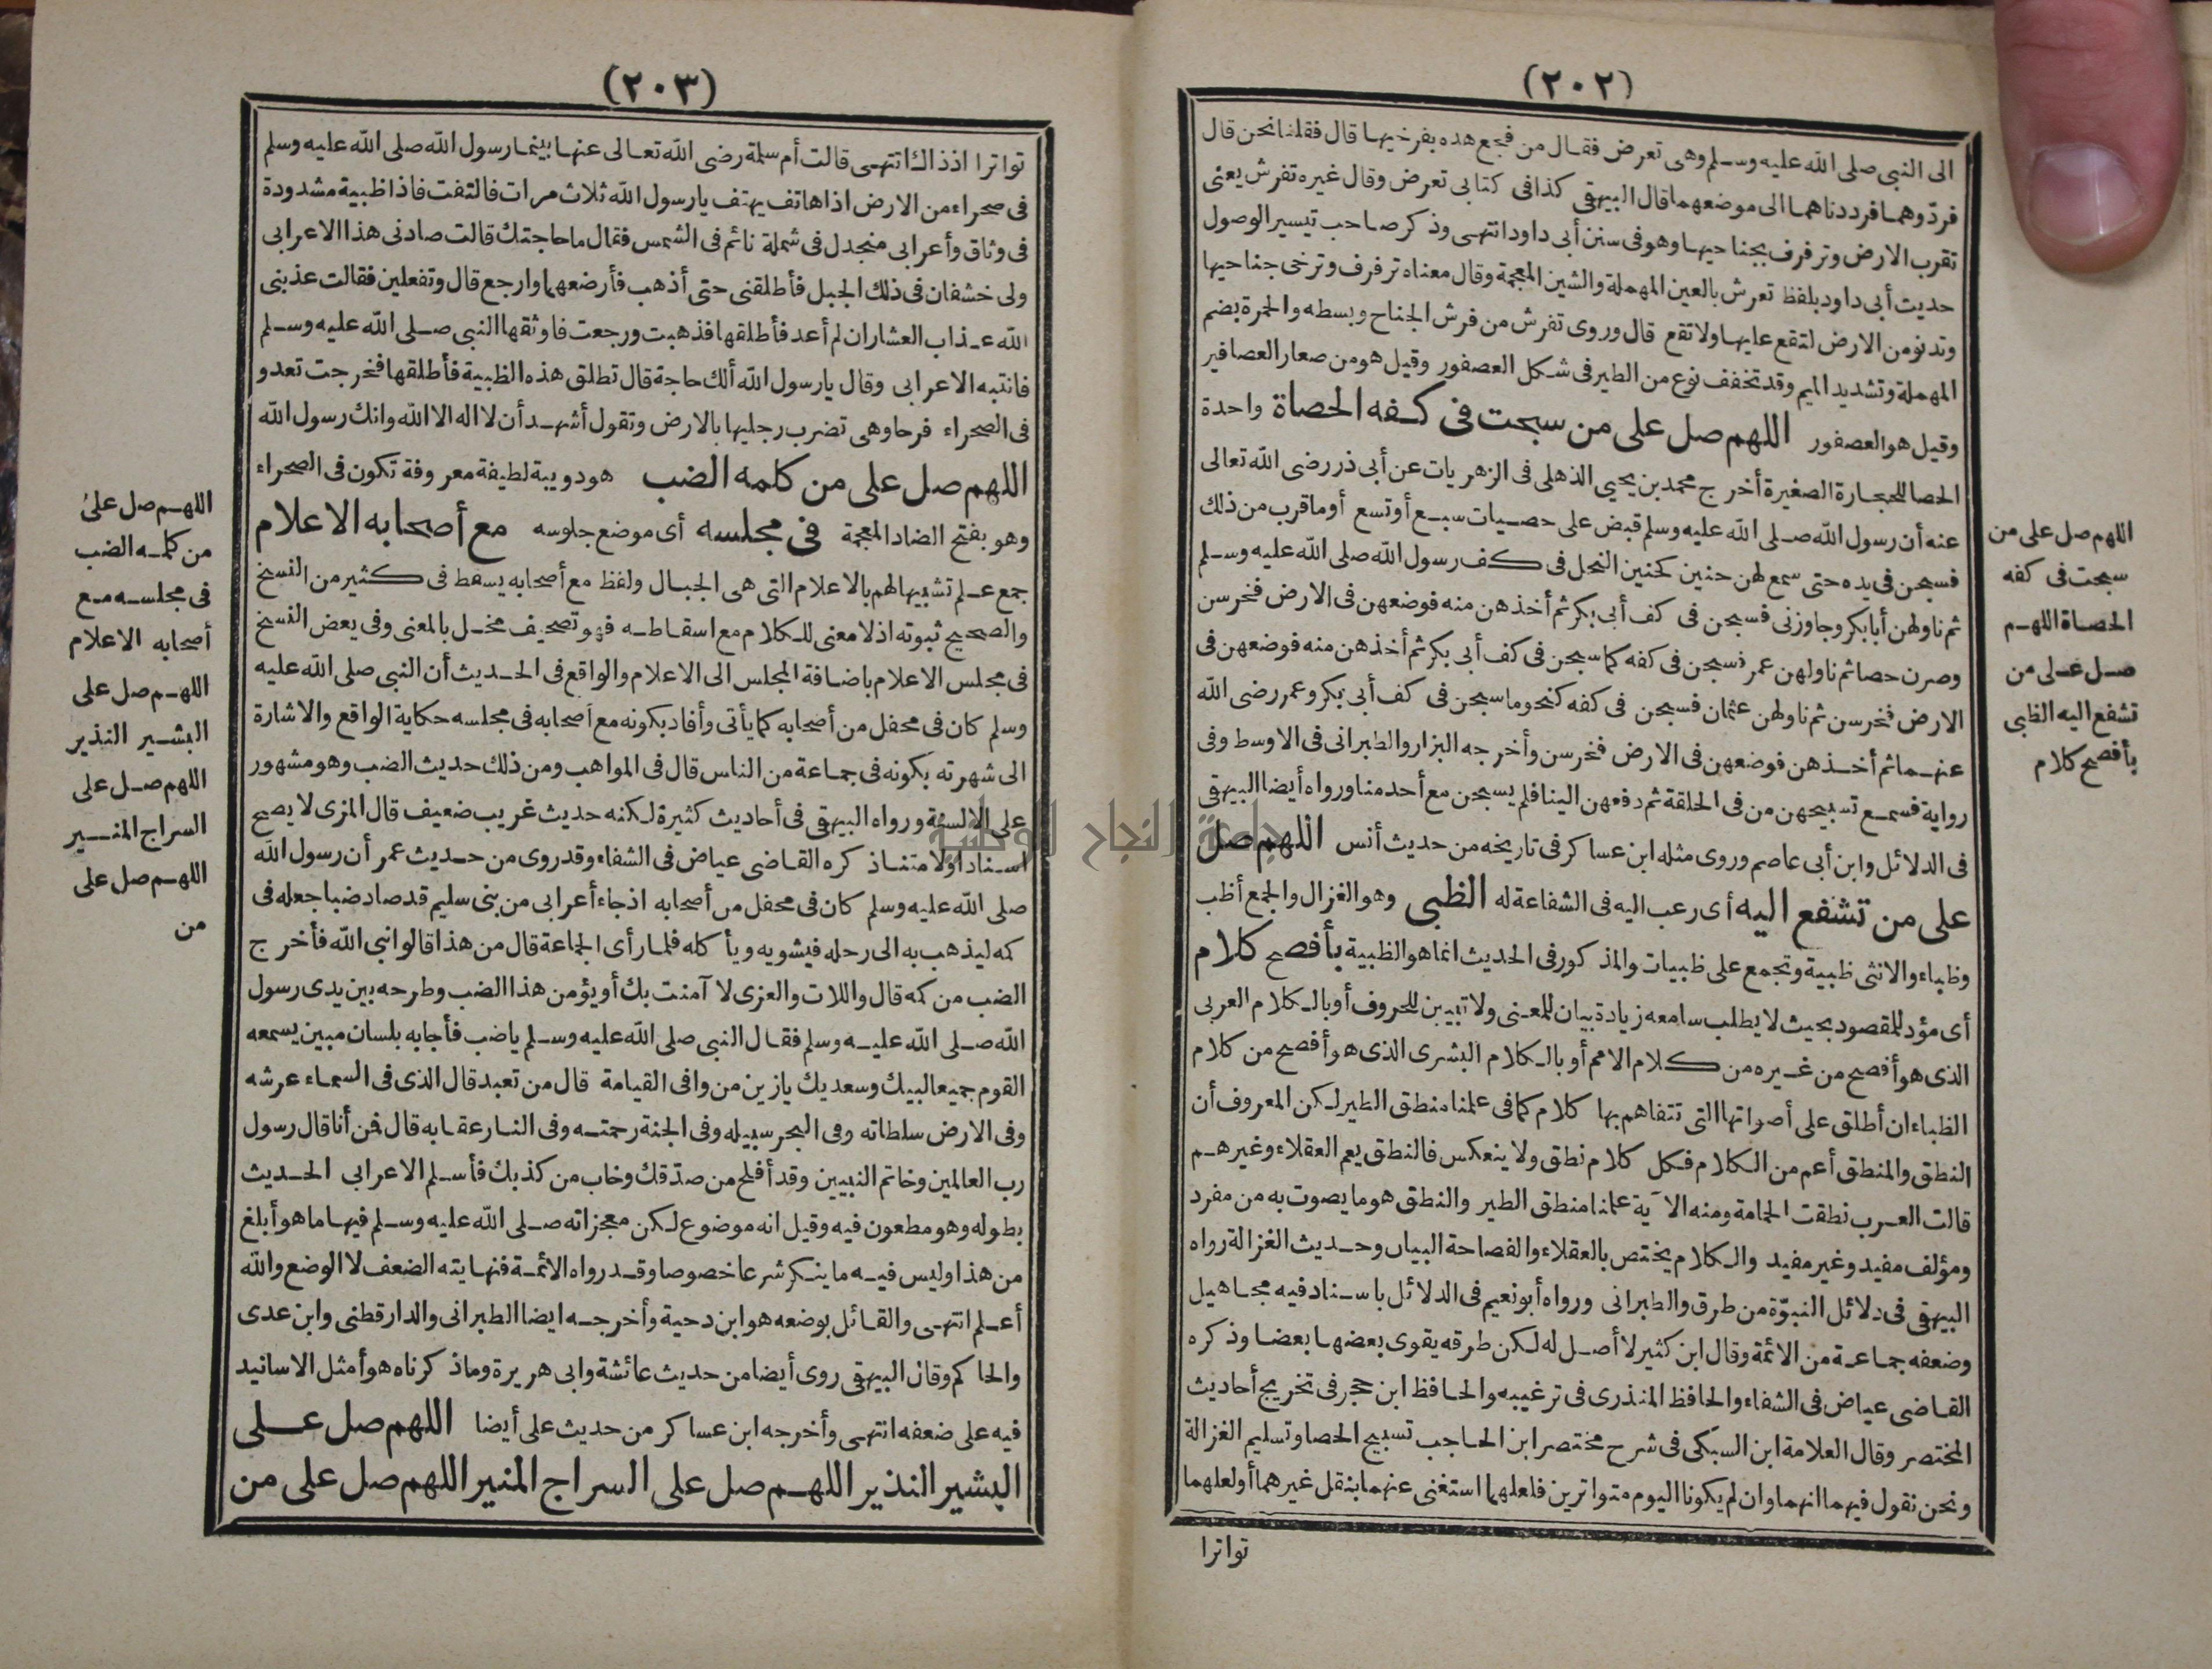 (٢٠٢)
الى النبى صلى الله عليه وسلم وهى تعرض فقال من فجع هذه بفرخيها قال فقلنا نحن قال
فردّوهما فرددناهما الى موضعهما قال البيهقى كذا فى كتابى تعرض وقال غيره تفرش يعنى
تقرب الارض وترفرف بجناحيها وهو فى سنن أبى داود انتهى وذكر صاحب تيسير الوصول
حديث أبى داود بلفظ تعرش بالعين المهملة والشين المعجمة وقال معناه ترفرف وترخى جناحيها
وتدنو من الارض لتقع عليها ولا تقع قال وروى تفرش من فرش الجناح وبسطه والحمرة بضم
المهملة وتشديد الميم وقد تخفف نوع من الطير فى شكل العصفور وقيل هو من صعار العصافير
وقيل هو العصفور اللهم صل على من سبحت فى كفه الحصاة واحدة
الحصا للحجارة الصغيرة أخرج محمد بن يحيى الذهلى فى الزهريات عن أبى ذر رضى الله تعالى
عنه أن رسول الله صلى الله عليه وسلم قبض على حصيات سبع أو تسع أو ما قرب من ذلك
فسبحن فى يده حتى سمع لهن حنين كحنين النحل فى كف رسول الله صلى الله عليه وسلم
ثم ناولهن أبا بكر وجاوزنى فسبحن فى كف أبى بكر ثم أخذهن منه فوضعهن فى الارض فخرسن
وصرن حصا ثم ناولهن عمر فسبحن فى كفه كما سبحن فى كف أبى بكر ثم أخذهن منه فوضعهن فى
الارض فخرسن ثم ناولهن عثمان فسبحن فى كفه كنحو ما سبحن فى كف أبى بكر وعمر رضى الله
عنهما ثم أخذهن فوضعهن فى الارض فخرسن وأخرجه البزار والطبرانى فى الاوسط وفى
رواية فسمع تسبيحهن من فى الحلقة ثم دفعهن الينا فلم يسبحن مع أحد منا ورواه أيضا البيهقى
فى الدلائل وابن أبى عاصم وروى مثله ابن عساكر فى تاريخه من حديث أنس اللهم صل
على من تشفع اليه أى رعب اليه فى الشفاعة له الظبى وهو الغزال والجمع أظب
وظباء والانثى ظبية وتجمع على ظبيات والمذكور فى الحديث انما هو الظبية بأفصح كلام
أى مؤد للمقصود بحيث لا يطلب سامعه زيادة بيان للمعنى ولا تبيين للحروف أو بالكلام العربى
الذى هو أفصح من غيره من كلام الامم أو بالكلام البشرى الذى هو أفصح من كلام
الظباء ان أطلق على أصواتها التى تتفاهم بها كلام كما فى علمنا منطق الطير لكن المعروف أن
النطق والمنطق أعم من الكلام فكل كلام نطق ولا ينعكس فالنطق يعم العقلاء وغيرهم
قالت العرب نطقت الحمامة ومنه الآية علمنا منطق الطير والنطق هو ما يصوت به من مفرد
ومؤلف مفيد وغير مفيد والكلام يختص بالعقلاء والفصاحة البيان وحديث الغزالة رواه
البيهقى فى دلائل النبوّة من طرق والطبرانى ورواه أبو نعيم فى الدلائل باسناد فيه مجاهيل
وضعفه جماعة من الائمة وقال ابن كثير لا أصل له لكن طرقه يقوى بعضها بعضا وذكره
القاضى عياض فى الشفاء والحافظ المنذرى فى ترغيبه والحافظ ابن حجر فى تخريج أحاديث
المختصر وقال العلامة ابن السبكى فى شرح مختصر ابن الحاجب تسبيح الحصا وتسليم الغزالة
ونحن نقول فيهما انهما وان لم يكونا اليوم متواترين فلعلهما استغنى عنهما بنقل غيرهما أو لعلهما
تواترا
اللهم صل على من
سبحت فى كفه
الحصاة اللهم
صل على من
تشفع اليه الظبى
بأفصح كلام
(٢٠٣)
تواترا اذ ذاك انتهى قالت أم سلمة رضى الله تعالى عنها بينما رسول الله صلى الله عليه وسلم
فى صحراء من الارض اذا هاتف يهتف يا رسول الله ثلاث مرات فالتفت فاذا ظبية مشدودة
فى وثاق وأعرابى منجدل فى شملة نائم فى الشمس فقال ما حاجتك قالت صادنى هذا الاعرابى
ولى خشفان فى ذلك الجبل فأطلقنى حتى أذهب فأرضعهما وارجع قال وتفعلين فقالت عذبنى
الله عذاب العشار ان لم أعد فأطلقها فذهبت ورجعت فاوثقها النبى صلى الله عليه وسلم
فانتبه الاعرابى وقال يا رسول الله ألك حاجة قال تطلق هذه الظبية فأطلقها فخرجت تعدو
فى الصحراء فرحا وهى تضرب رجليها بالارض وتقول أشهد أن لا اله الا الله وانك رسول الله
اللهم صل على من كلمه الضب هو دويبة لطيفة معروفة تكون فى الصحراء
وهو بفتح الضاد المعجمة فى مجلسه أى موضع جلوسه مع أصحابه الاعلام
جمع علم تشبيها لهم بالاعلام التى هى الجبال ولفظ مع أصحابه يسقط فى كثير من النسخ
والصحيح ثبوته اذ لا معنى للكلام مع اسقاطه فهو تصحيف مخل بالمعنى وفى بعض النسخ
فى مجلس الاعلام باضافة المجلس الى الاعلام والواقع فى الحديث أن النبى صلى الله عليه
وسلم كان فى محفل من أصحابه كما يأتى وأفاد بكونه مع أصحابه فى مجلسه حكاية الواقع والاشارة
الى شهرته بكونه فى جماعة من الناس قال فى المواهب ومن ذلك حديث الضب وهو مشهور
على الالسنة ورواه البيهقى فى أحاديث كثيرة لكنه حديث غريب ضعيف قال المزى لا يصح
اسنادا ولا متنا ذكره القاضى عياض فى الشفاء وقد روى من حديث عمر أن رسول الله
صلى الله عليه وسلم كان فى محفل من أصحابه اذ جاء أعرابى من بنى سليم قد صاد ضبا جعله فى
كمه ليذهب به الى رحله فيشويه ويأكله فلما رأى الجماعة قال من هذا قالوا نبى الله فأخرج
الضب من كمه قال واللات والعزى لا آمنت بك أو يؤمن هذا الضب وطرحه بين يدى رسول
الله صلى الله عليه وسلم فقال النبى صلى الله عليه وسلم يا ضب فأجابه بلسان مبين يسمعه
القوم جميعا لبيك وسعديك يا زين من وافى القيامة قال من تعبد قال الذى فى السماء عرشه
وفى الارض سلطانه وفى البحر سبيله وفى الجنة رحمته وفى النار عقابه قال فمن أنا قال رسول
رب العالمين وخاتم النبيين وقد أفلح من صدّقك وخاب من كذبك فأسلم الاعرابى الحديث
بطوله وهو مطعون فيه وقيل انه موضوع لكن معجزاته صلى الله عليه وسلم فيها ما هو أبلغ
من هذا وليس فيه ما ينكر شرعا خصوصا وقد رواه الائمة فنهايته الضعف لا الوضع والله
أعلم انتهى والقائل بوضعه هو ابن دحية وأخرجه ايضا الطبرانى والدارقطنى وابن عدى
والحاكم وقال البيهقى روى أيضا من حديث عائشة وابى هريرة وما ذكرناه هو أمثل الاسانيد
فيه على ضعفه انتهى وأخرجه ابن عساكر من حديث على أيضا اللهم صل على
البشير النذير اللهم صل على السراج المنير اللهم صل على من
اللهم صل على
من كلمه الضب
فى مجلسه مع
أصحابه الاعلام
اللهم صل على
البشير النذير
اللهم صل على
السراج المنير
اللهم صل على
من
جامعة النجاح الوطنية